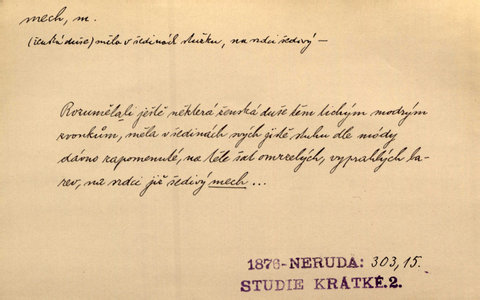 mech, m.
(ženská duše) měla v šedinách stužku, na srdci šedivý —
Rozuměla-li ještě některá ženská duše těm tichým modrým
zvonkům, měla v šedinách svých jistě stuhu dle módy
dávno zapomenuté, na těle šat omrzelých, vyprahlých ba-
rev, na srdci již šedivý mech ...
1876-NERUDA: 303,15.
STUDIE KRÁTKÉ.2.